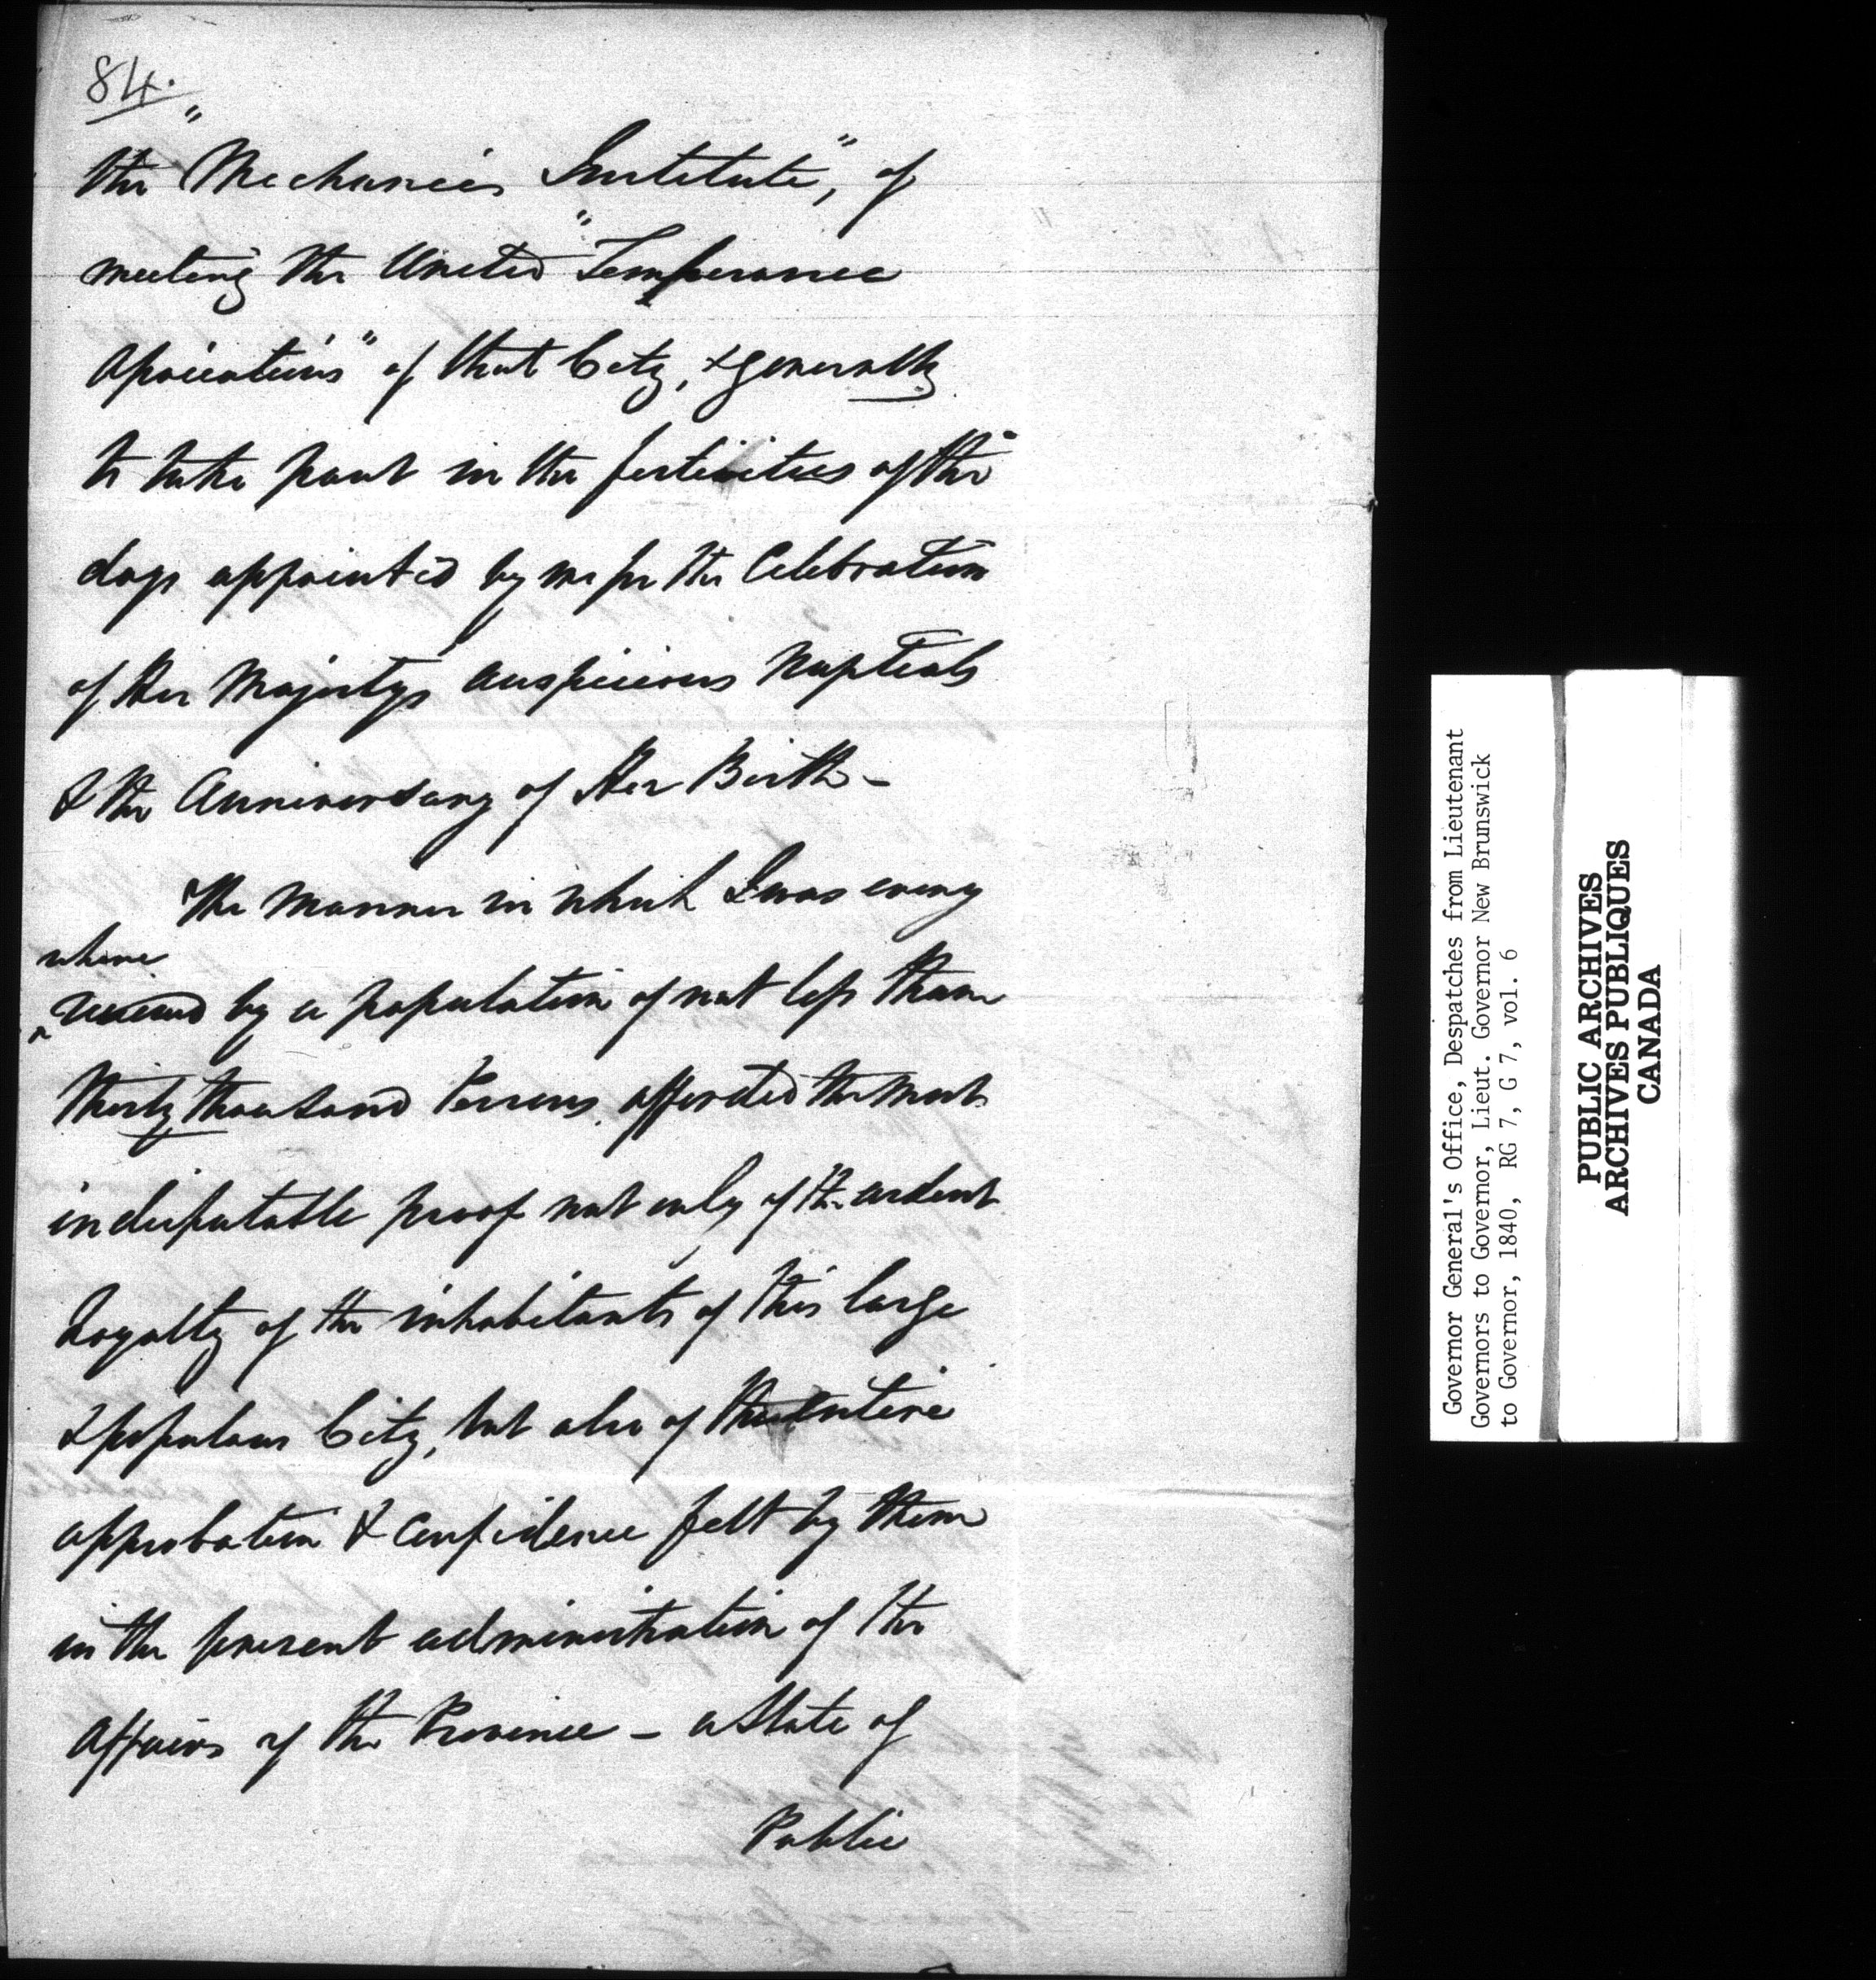 84.
the "Mechanics Institute", of
meeting the United "Temperance
Associations" of that City, & generally
to take part in the festivities of the
days appointed by me for the Celebration
of Her Majestys auspicious Nuptials
& the Anniversary of Her Birth –
The manner in which I was every
where
received by a population of not less than
thirty thousand Persons, afforded the most
indisputable proof not only of the ardent
Loyalty of the inhabitants of this large
& populous City, but also of the entire
approbation & confidence felt by them
in the present administration of the
affairs of the Province – a State of
Public
Governor General's Office, Despatches from Lieutenant
Governors to Governor, Lieut. Governor New Brunswick
to Governor, 1840, RG 7, G 7, vol. 6
PUBLIC ARCHIVES
ARCHIVES PUBLIQUES
CANADA